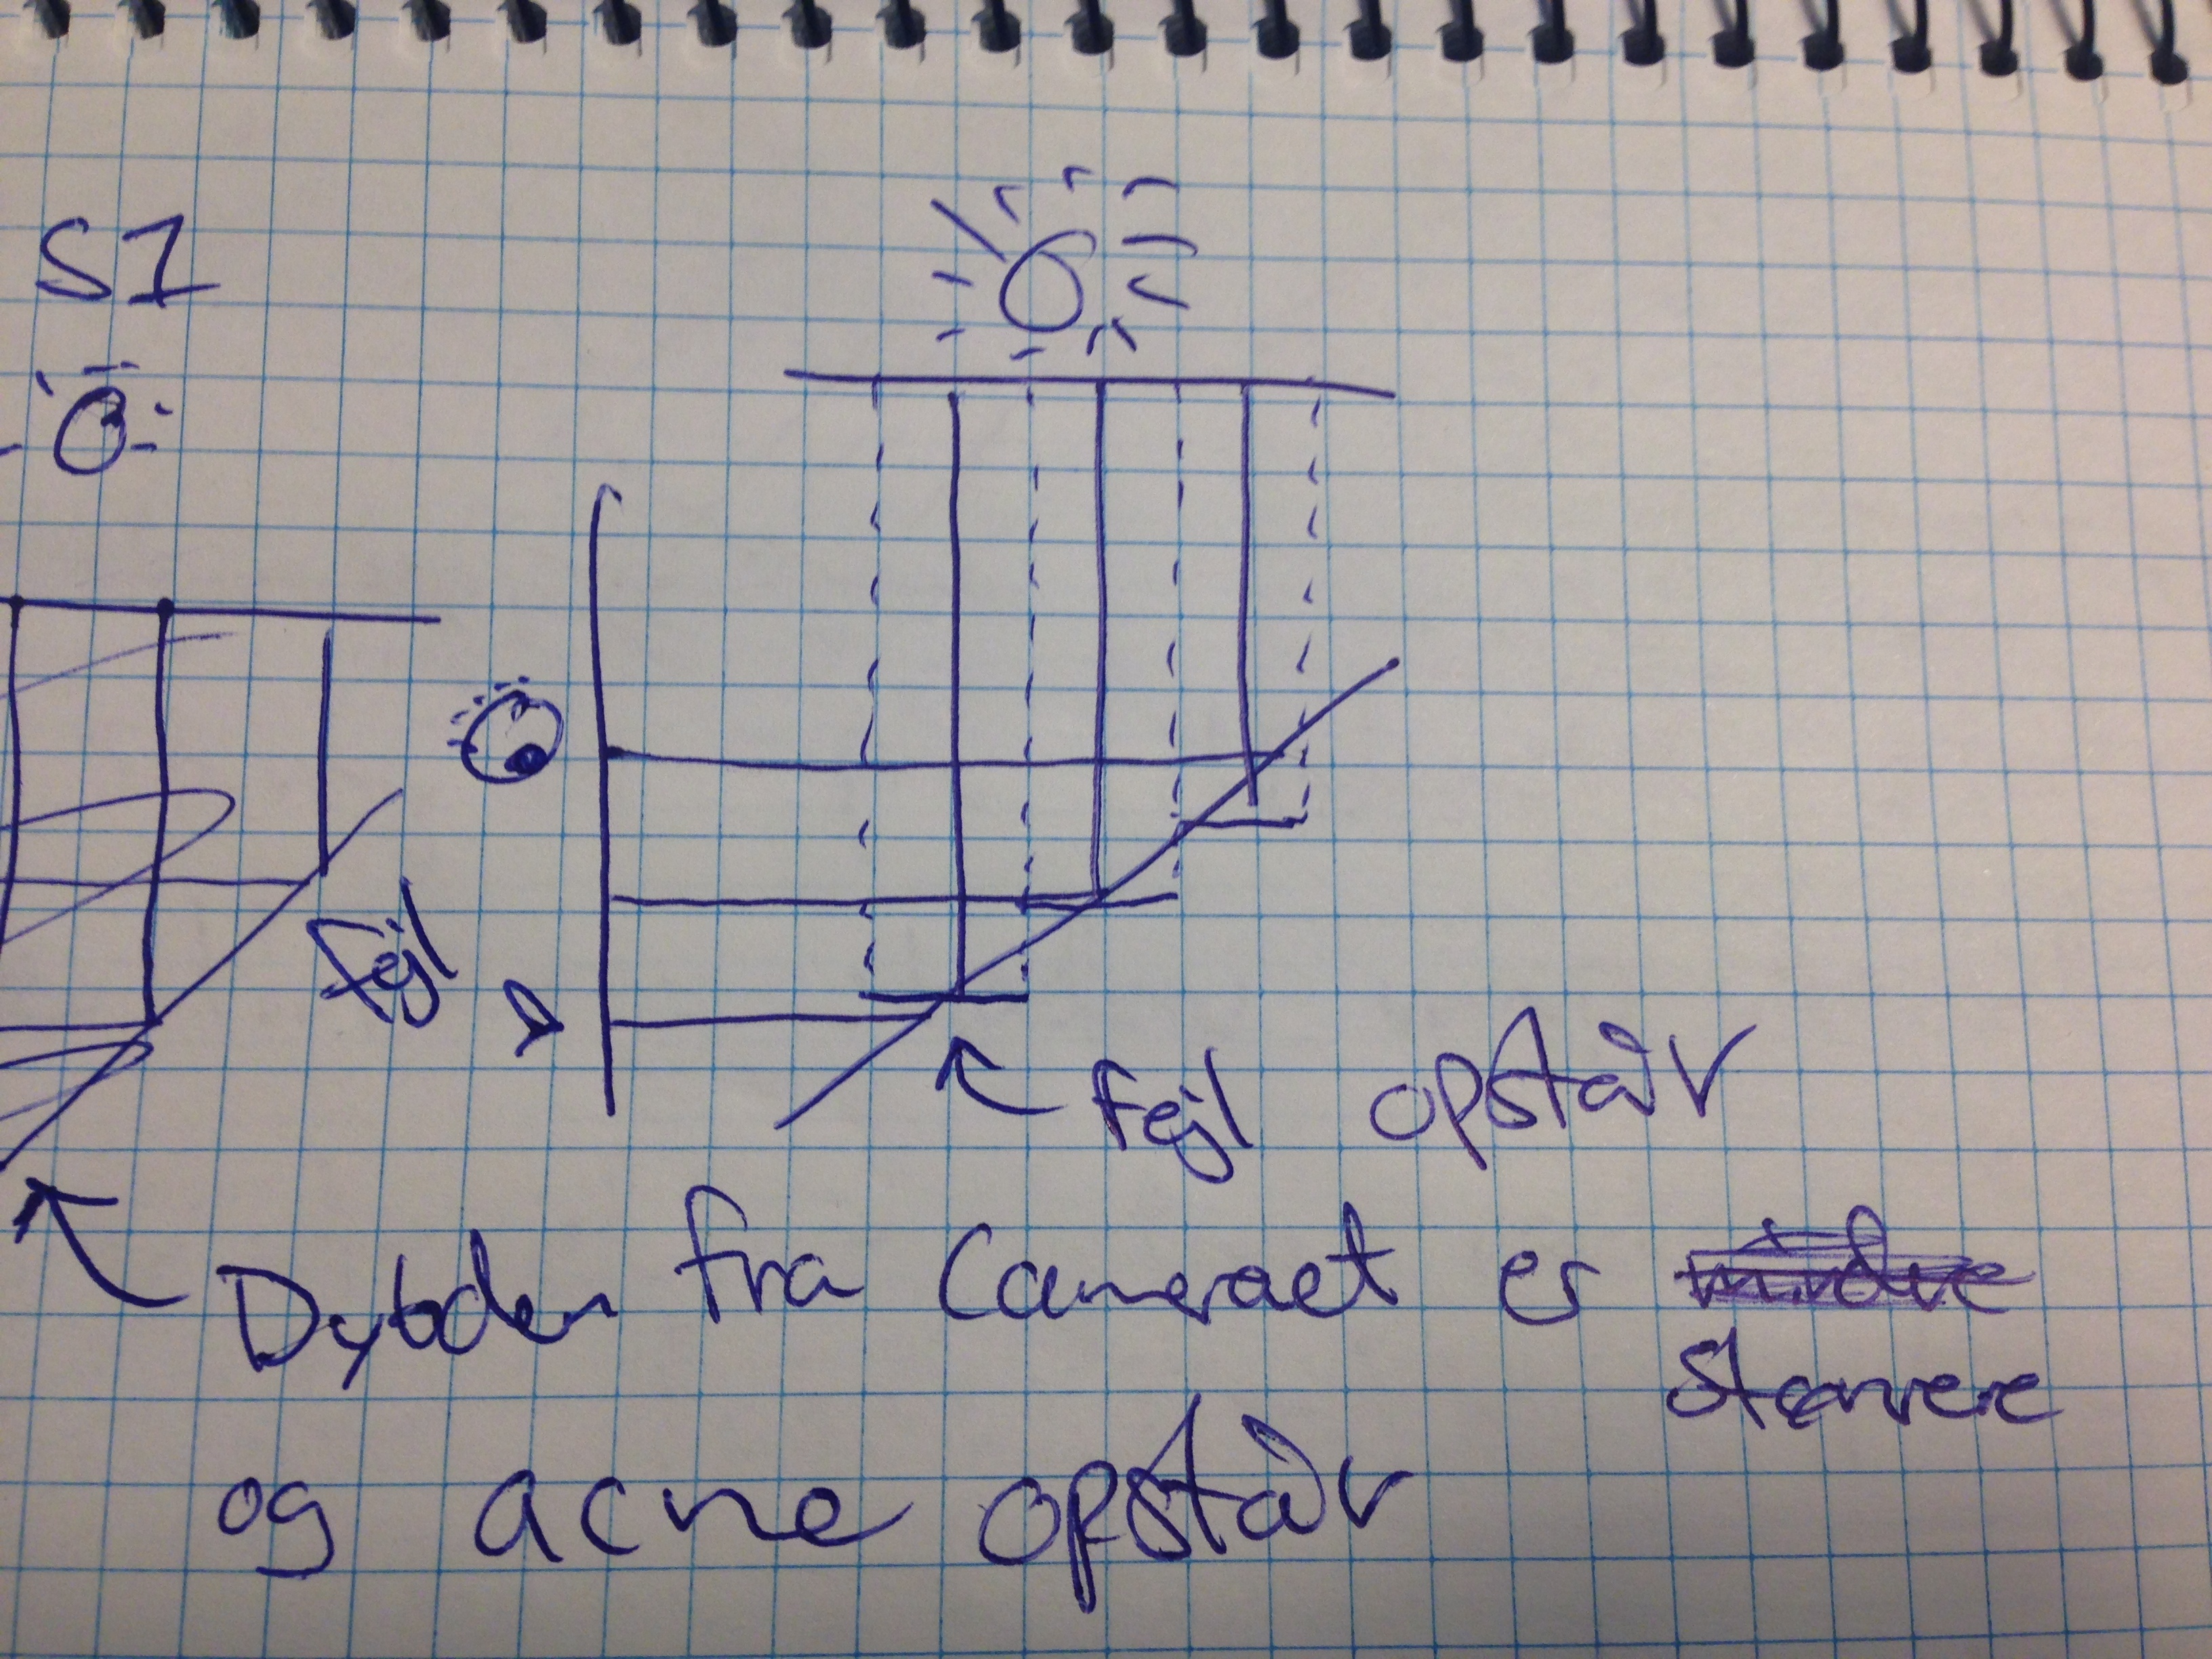 S1
Fejl
Fejl opstår
Dybden fra Cameraet er mindre
større
og acne opstår